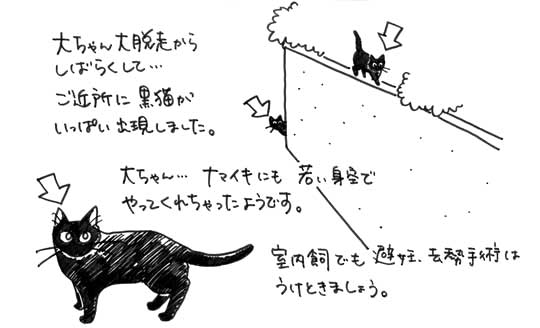 大ちゃん大脱走から
しばらくして…
ご近所に黒猫が
いっぱい出現しました。
大ちゃん… ナマイキにも 若い身空で
やってくれちゃったようです。
室内飼でも 避妊、去勢手術は
うけときましょう。